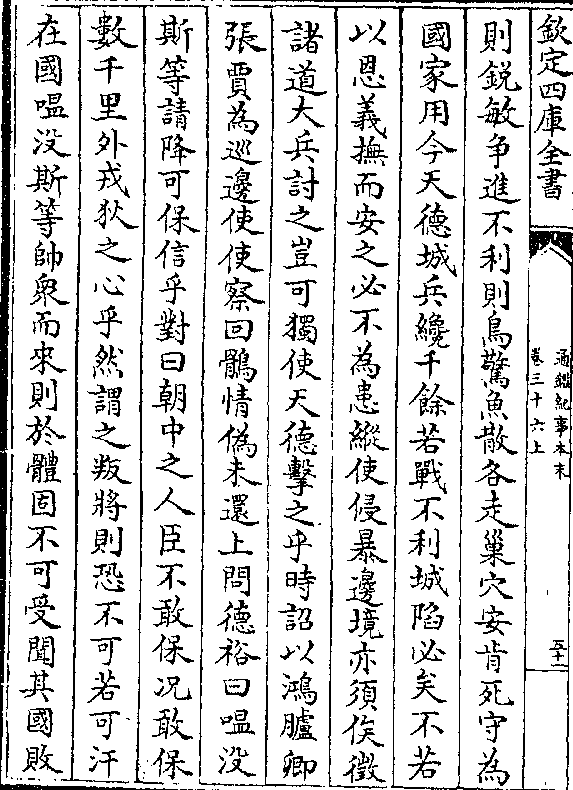 欽定四庫全書
通鑑紀事本末
卷三十六上
五十一
則鋭敏争進不利則鳥驚魚散各走巢穴安肯死守為
國家用今天德城兵纔千餘若戰不利城陷必矣不若
以恩義撫而安之必不為患縱使侵暴邊境亦須俟徵
諸道大兵討之豈可獨使天德擊之乎時詔以鴻臚卿
張賈為巡邊使使察回鶻情偽未還上問德裕曰嗢没
斯等請降可保信乎對曰朝中之人臣不敢保况敢保
數千里外戎狄之心乎然謂之叛將則恐不可若可汗
在國嗢没斯等帥衆而來則於體固不可受聞其國敗